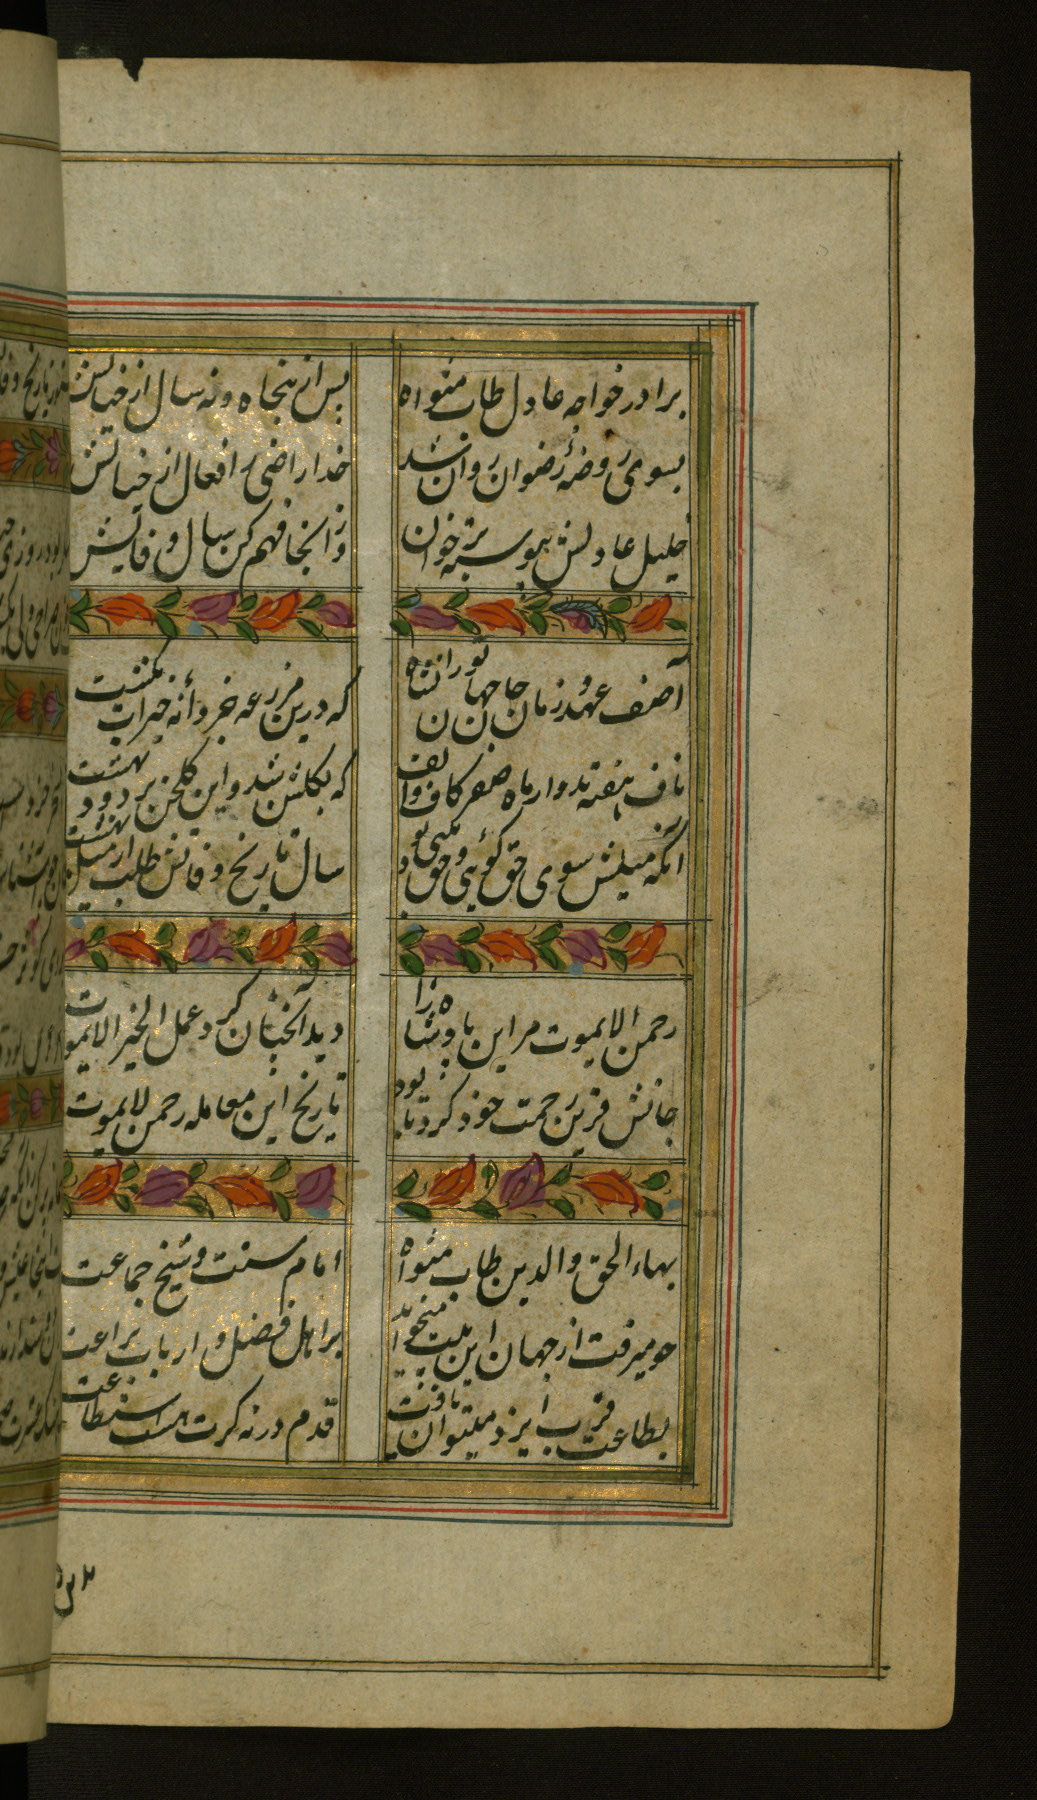 برادر خواجه عادل طاب مثواه
پس از پنجاه و نه سال از حیاتش
بسوی روضهٔ رضوان روان شد
خدا راضی ز افعال از حیاتش
خلیل عادلش پیوسته برخوان
وز آنجا فهم کن سال وفاتش
آصف عهد زمان جان جهان تورانشاه
که درین مزرعه جز دانه خیرات نکشت
ناف هفته بد و از ماه صفر کاف و الف
که بگلشن شد و این گلخن پر دود بهشت
آنکه میلش سوی حق گوئی و حق بود
سال تاریخ وفاتش طلب از میل بهشت
رحمن لایموت مر این پادشاه را
دید آنچنان کرد عمل الخیر لایموت
جانش قرین رحمت خود کرد تا بود
تاریخ این معامله رحمن لایموت
بهاء الحق والدین طاب مثواه
امام سنت و شیخ جماعت
چو میرفت از جهان این بیت میخواند
بر اهل فضل و ارباب براعت
بطاعت قرب ایزد میتوان یافت
قدم در نه گرت هست استطاعت